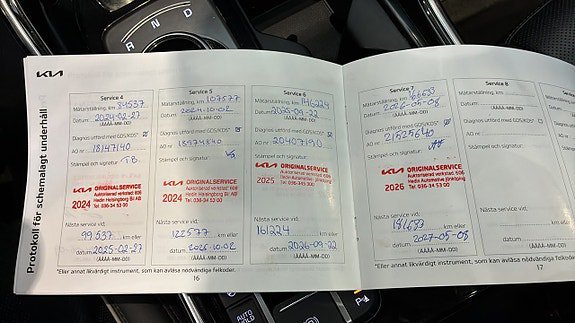 R N D
KIA
Protokoll för schemalagt underhåll
Service 4
Mätarställning, km 84537
Datum 2024-02-27
(ÅÅÅÅ-MM-DD)
Diagnos utförd med GDS/KDS*
AO nr 18147140
Stämpel och signatur:
T.B.
KIA ORIGINALSERVICE
Auktoriserad verkstad: 606
2024 Hedin Helsingborg Bil AB
Tel: 036-34 53 00
Nästa service vid:
99537 km eller
datum 2025-02-27
(ÅÅÅÅ-MM-DD)
Service 5
Mätarställning, km 107577
Datum 2024-10-02
(ÅÅÅÅ-MM-DD)
Diagnos utförd med GDS/KDS*
AO nr 18974840
Stämpel och signatur:
KIA ORIGINALSERVICE
Auktoriserad verkstad: 606
2024 Hedin Helsingborg Bil AB
Tel: 036-34 53 00
Nästa service vid:
122577 km eller
datum 2025-10-02
(ÅÅÅÅ-MM-DD)
Service 6
Mätarställning, km 146224
Datum 2025-09-22
(ÅÅÅÅ-MM-DD)
Diagnos utförd med GDS/KDS*
AO nr 20407190
Stämpel och signatur:
KIA ORIGINALSERVICE
Auktoriserad verkstad: 606
2025
Tel: 036-349 300
Nästa service vid:
161224 km eller
datum 2026-09-22
(ÅÅÅÅ-MM-DD)
*Eller annat likvärdigt instrument, som kan avläsa nödvändiga felkoder.
16
Service 7
Mätarställning, km
Datum 2026-05-08
(ÅÅÅÅ-MM-DD)
Diagnos utförd med GDS/KDS*
AO nr 21525640
Stämpel och signatur:
KIA ORIGINALSERVICE
Auktoriserad verkstad: 606
Hedin Automotive Jönköping
2026 Tel: 036-34 53 00
Nästa service vid:
km eller
datum 2027-05-08
(ÅÅÅÅ-MM-DD)
Service 8
Mätarställning, km
Datum
(ÅÅÅÅ-MM-DD)
Diagnos utförd med GDS/KDS*
AO nr
Stämpel och signatur:
Nästa service vid:
km eller
datum
(ÅÅÅÅ-MM-DD)
*Eller annat likvärdigt instrument, som kan avläsa nödvändiga felkoder.
17
AUTO
HOLD
P